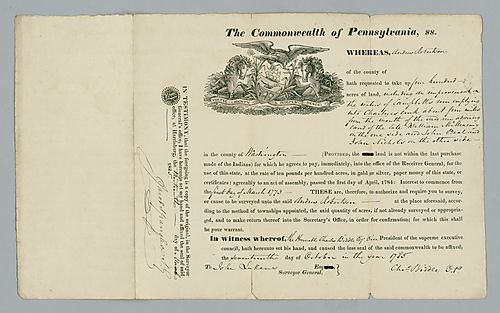 The Commonwealth of Pennsylvania, ss.
WHEREAS, Andrew Robertson
of the county of
hath requested to take up four hundred
acres of land, including an improvement on
the waters of Campbell's run emptying
into Chartiers creek about four miles
from the mouth of the said run adjoining
land of the late William
on the one side and John Beal and
John Nichols on the other side
in the county of Washington (PROVIDED, the land is not within the last purchase
made of the Indians) for which he agrees to pay, immediately, into the office of the Receiver General, for the
use of this state, at the rate of ten pounds per hundred acres, in gold or silver, paper money of this state, or
certificates: agreeably to an act of assembly, passed the first day of April, 1784: Interest to commence from
the first day of March 1773 THESE are, therefore, to authorize and require you to survey,
or cause to be surveyed unto the said Andrew Robertson at the place aforesaid, according to the
method of townships appointed, the said quantity of acres, if not already surveyed or appropriated,
and to make return thereof into the Secretary's Office, in order for confirmation; for which this shall
be your warrant.
In witness whereof, the Honorable Charles Biddle Esq Vice President of the supreme executive
council, hath hereunto set his hand, and caused the less seal of the said commonwealth to be affixed;
the seventeenth day of October in the year 1785
To John Lukens Esq
Surveyor General,
Chas Biddle V.P
IN TESTIMONY, that the foregoing is a copy of the original, in the Surveyor
General's office, I have hereunto set my hand and affixed the seal of said
office, at Harrisburg, the
day of March